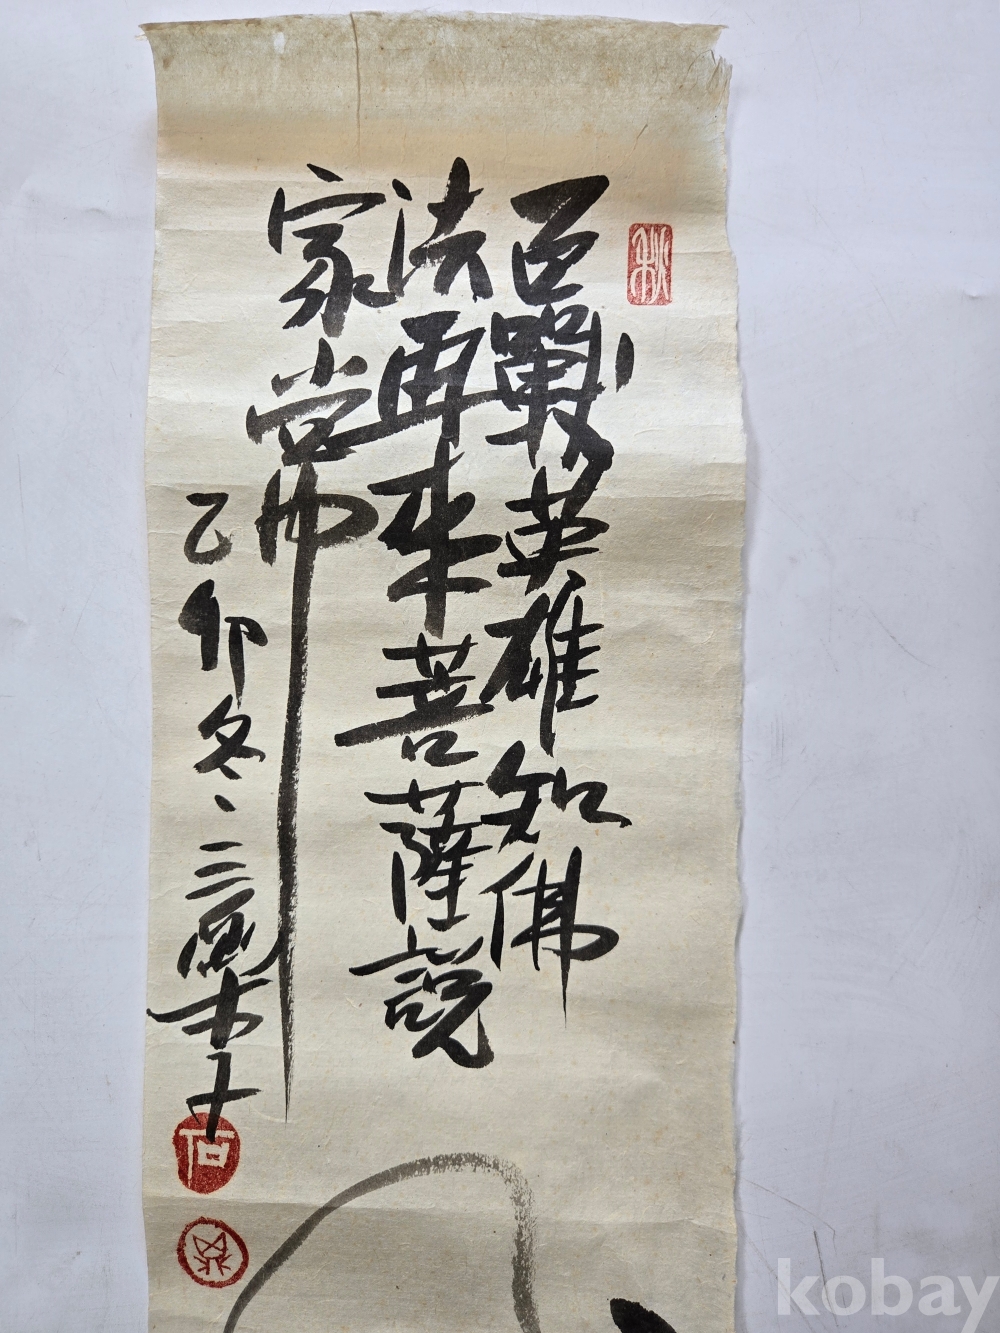 百戰英雄知佛
法再來菩薩說
家常
乙卯冬三
秋
石
kobay